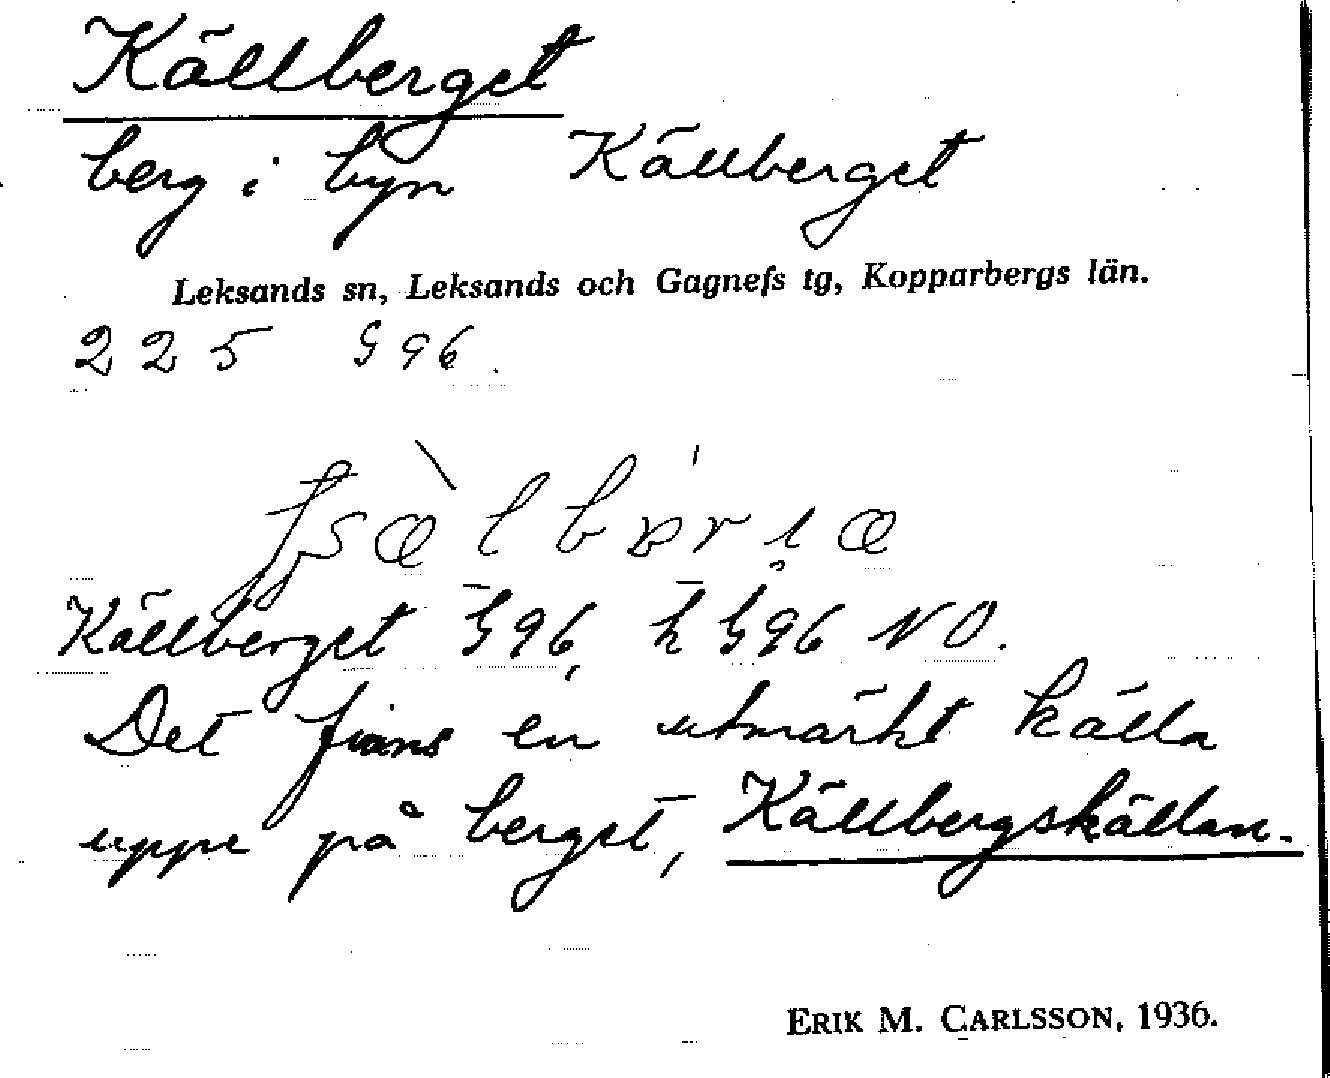 Källberget
berg i byn Källberget
Leksands sn, Leksands och Gagnefs tg, Kopparbergs län.
225 G96.
Källberget G96, h G96 NO.
Det finns en utmärkt källa
uppe på berget, Källbergskällan.
ERIK M. CARLSSON, 1936.